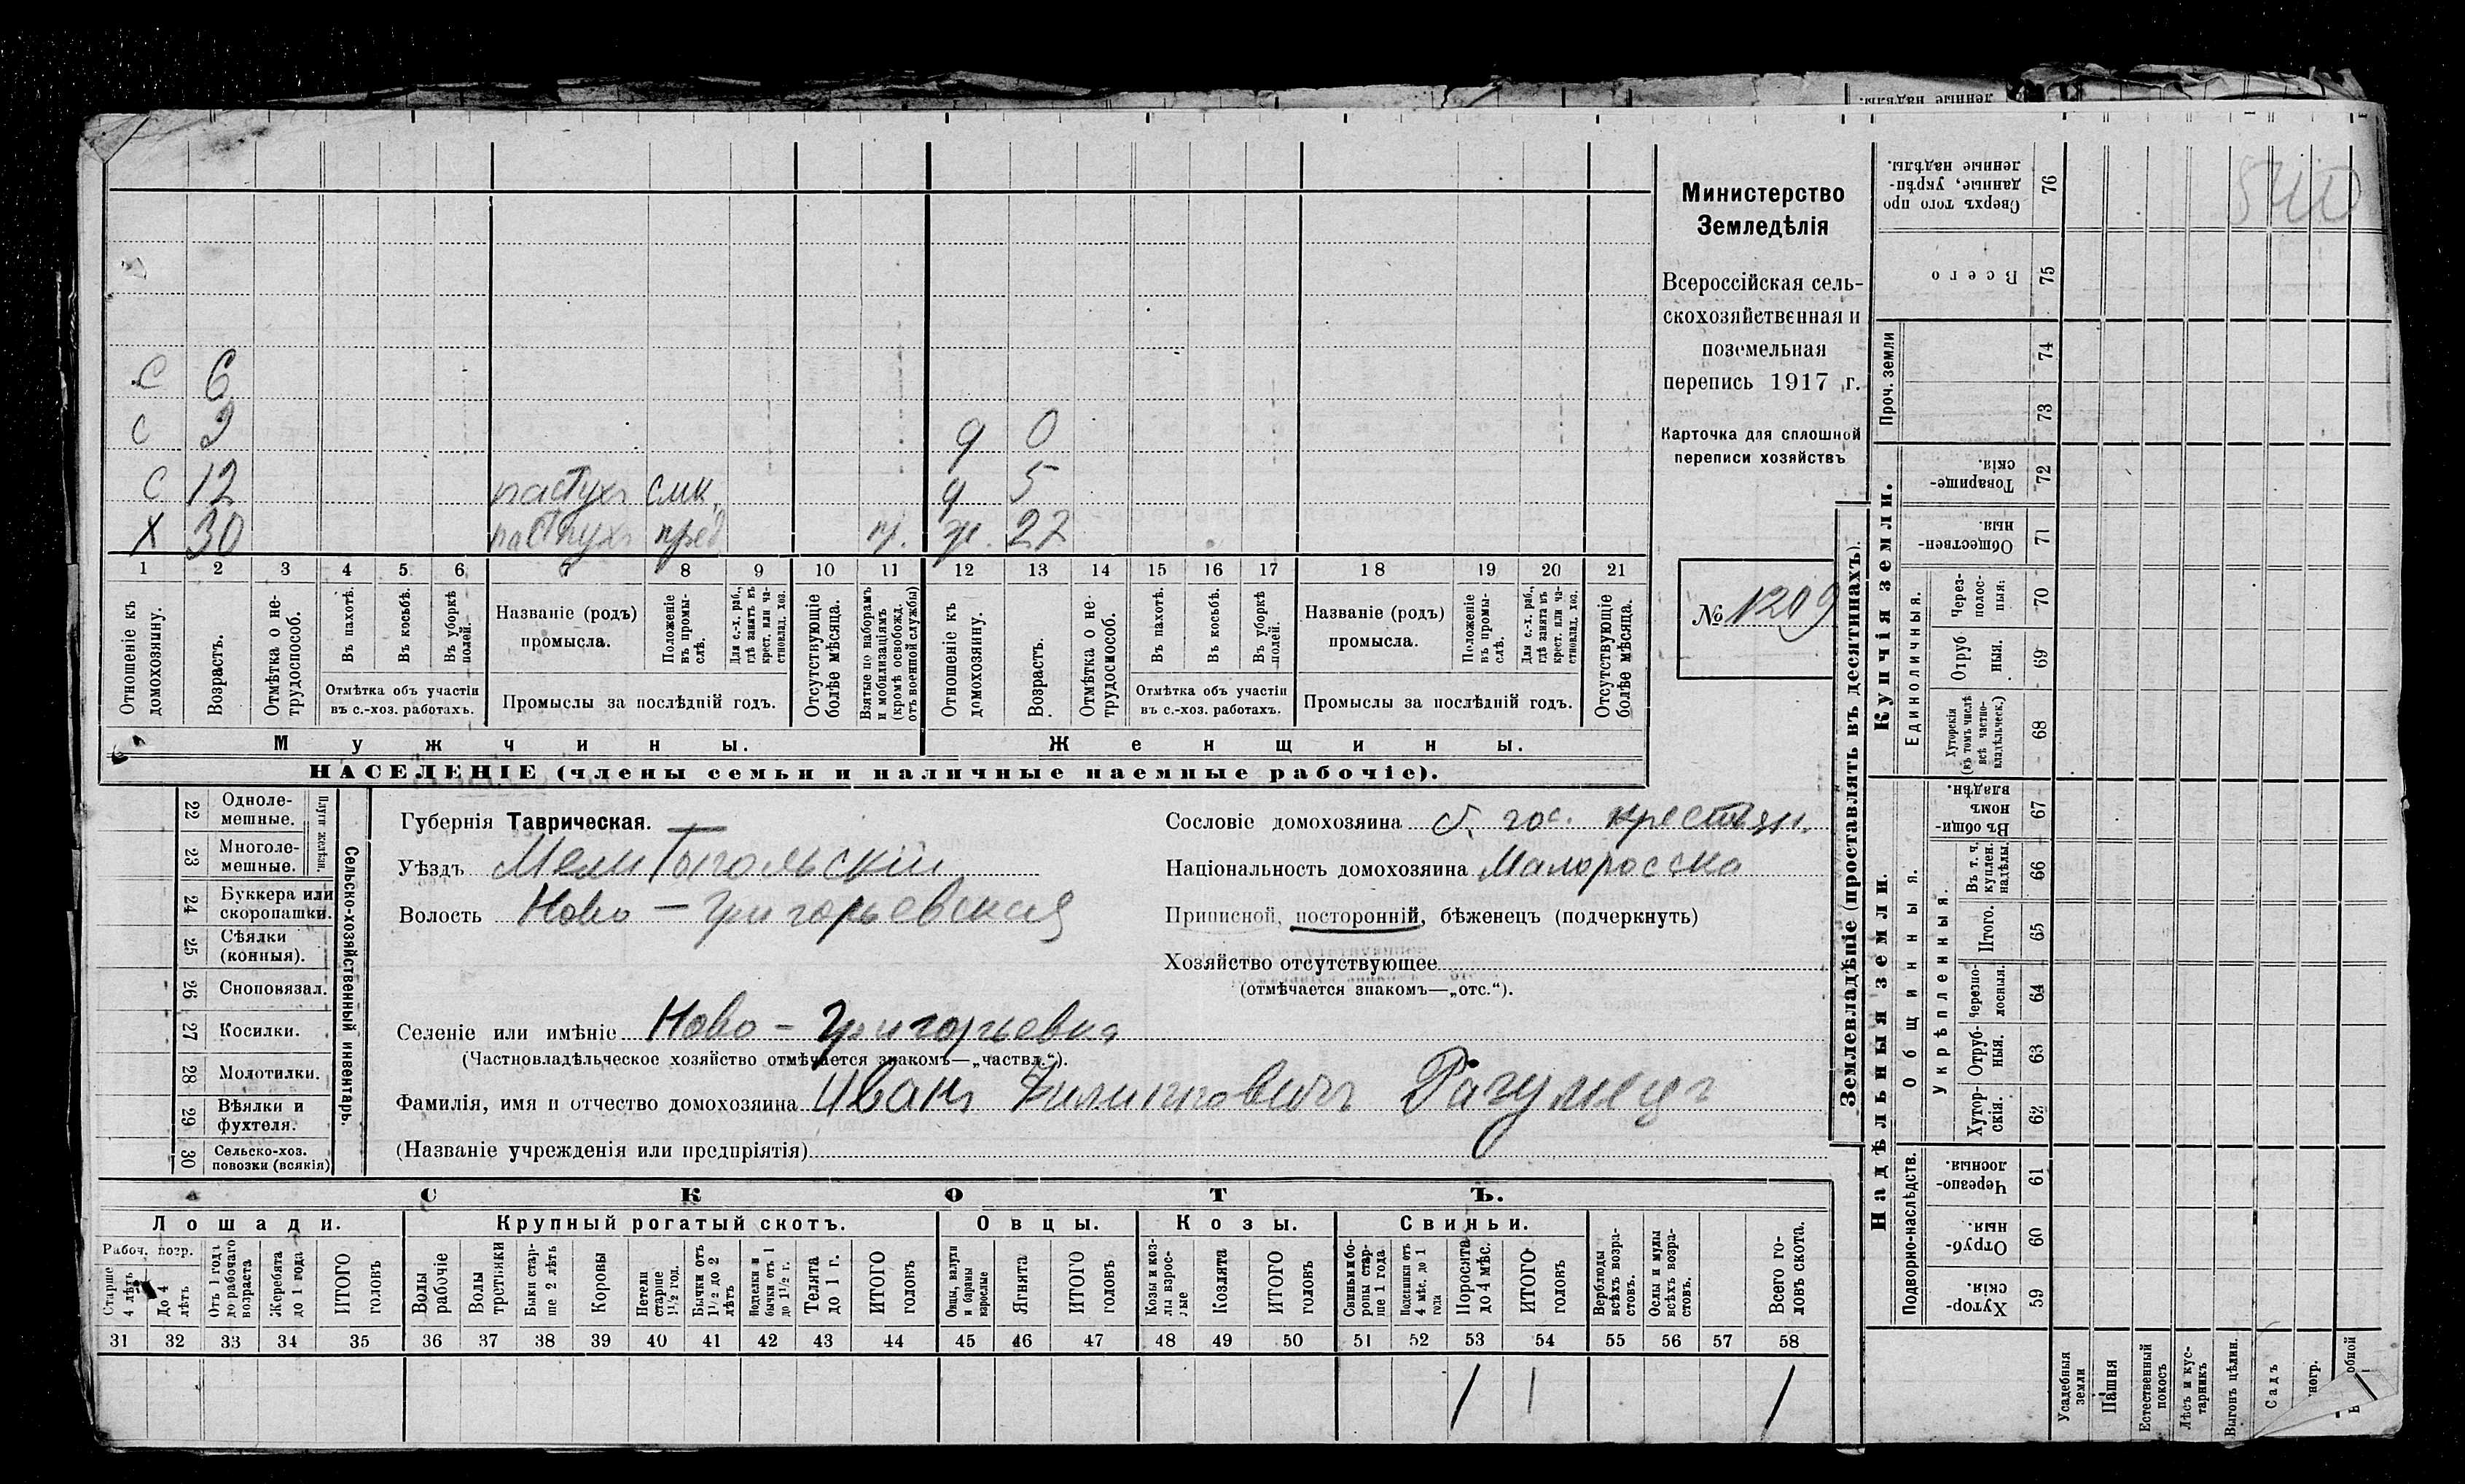 ленные надѣлы.
С 6
С 3
С 12 пастухъ
Х 30 пастухъ пр.
д 0
д 5
ж. 27
1 2 3 4 5 6 7 8 9 10 11 12 13 14 15 16 17 18 19 20 21
Отношеніе къ домохозяину.
Возрастъ.
Отмѣтка о не-трудоспособ.
Въ пахотѣ.
Въ косьбѣ.
Въ уборкѣ полей.
Отмѣтка объ участіи
въ с.-хоз. работахъ.
Названіе (родъ)
промысла.
Положеніе въ промы-слѣ.
Для с.-х. раб., гдѣ занятъ въ крест. или ча-стновлад. хоз.
Промыслы за послѣдній годъ.
Отсутствующіе болѣе мѣсяца.
Взятые по наборамъ и мобилизаціямъ (кромѣ освобожд. отъ военной службы)
Отношеніе къ домохозяину.
Возрастъ.
Отмѣтка о не-трудоспособ.
Въ пахотѣ.
Въ косьбѣ.
Въ уборкѣ полей.
Отмѣтка объ участіи
въ с.-хоз. работахъ.
Названіе (родъ)
промысла.
Положеніе въ промы-слѣ.
Для с.-х. раб., гдѣ занятъ въ крест. или ча-стновлад. хоз.
Промыслы за послѣдній годъ.
Отсутствующіе болѣе мѣсяца.
Мужчины.
Женщины.
НАСЕЛЕНІЕ (члены семьи и наличные наемные рабочіе).
Министерство
Земледѣлія
Всероссійская сель-
скохозяйственная и
поземельная
перепись 1917 г.
Карточка для сплошной
переписи хозяйствъ
№ 1209
22 Одноле-мешные.
23 Многоле-мешные.
Плуги желѣзн.
24 Буккера или скоропашки.
25 Сѣялки (конныя).
26 Сноповязал.
27 Косилки.
28 Молотилки.
29 Вѣялки и фухтеля.
30 Сельско-хоз. повозки (всякія)
Сельско-хозяйственный инвентарь.
Губернія Таврическая.
Уѣздъ Мелитопольскій
Волость Ново-Григорьевская
Сословіе домохозяина б. гос. крестьян.
Національность домохозяина Малоросска
Приписной, посторонній, бѣженецъ (подчеркнуть)
Хозяйство отсутствующее
(отмѣчается знакомъ—„отс.“).
Селеніе или имѣніе Ново-Григорьевка
(Частновладѣльческое хозяйство отмѣчается знакомъ—„частвл.“).
Фамилія, имя и отчество домохозяина Иванъ Филипповичъ
(Названіе учрежденія или предпріятія)
СКОТЪ.
Лошади.
Крупный рогатый скотъ.
Овцы.
Козы.
Свиньи.
Рабоч. возр.
Старше 4 лѣтъ
До 4 лѣтъ
Отъ 1 года до рабочаго возраста
Жеребята до 1 года
ИТОГО головъ
Волы рабочіе
Волы третьяки
Быки стар-ше 2 лѣтъ
Коровы
Нетели старше 1½ год.
Бычки отъ 1½ до 2 лѣтъ
Нодтелки и бычки отъ 1 до 1½ г.
Телята до 1 г.
ИТОГО головъ
Овцы, валухи и бараны взрослые
Ягнята
ИТОГО головъ
Козы и коз-лы взрос-лые
Козлята
ИТОГО головъ
Свиньи и бо-ровы стар-ше 1 года
Подсвинки отъ 4 мѣс. до 1 года
Поросята до 4 мѣс.
ИТОГО головъ
Верблюды всѣхъ возра-стовъ.
Ослы и мулы всѣхъ возра-стовъ.
Всего го-ловъ скота.
31 32 33 34 35 36 37 38 39 40 41 42 43 44 45 46 47 48 49 50 51 52 53 54 55 56 57 58
1 1 1
Землевладѣніе (проставлять въ десятинахъ).
Надѣльныя земли.
Купчія земли.
Подворно-наслѣдств.
Общинныя.
Укрѣпленныя.
Единоличныя.
Проч. земли
Сверхъ того про данные, укрѣп-ленные надѣлы. 76
Всего 75
74
73
Товарище-скія. 72
Обществен-ныя. 71
Через-полос-ныя: 70
Отруб ныя. 69
Хуторскія (въ томъ числѣ всѣ частно-владѣльческ.) 68
Въ общи-номъ владѣн. 67
Въ т. ч. куплен. надѣлы. 66
Итого. 65
Черезпо-лосныя. 64
Отруб-ныя. 63
Хутор-скія. 62
Черезпо-лосныя. 61
Отруб-ныя. 60
Хутор-скія. 59
Усадебныя земли
Пашня
Естественный покосъ
Лѣсъ и кус-тарникъ
Выгонъ цѣлин.
Садъ
540